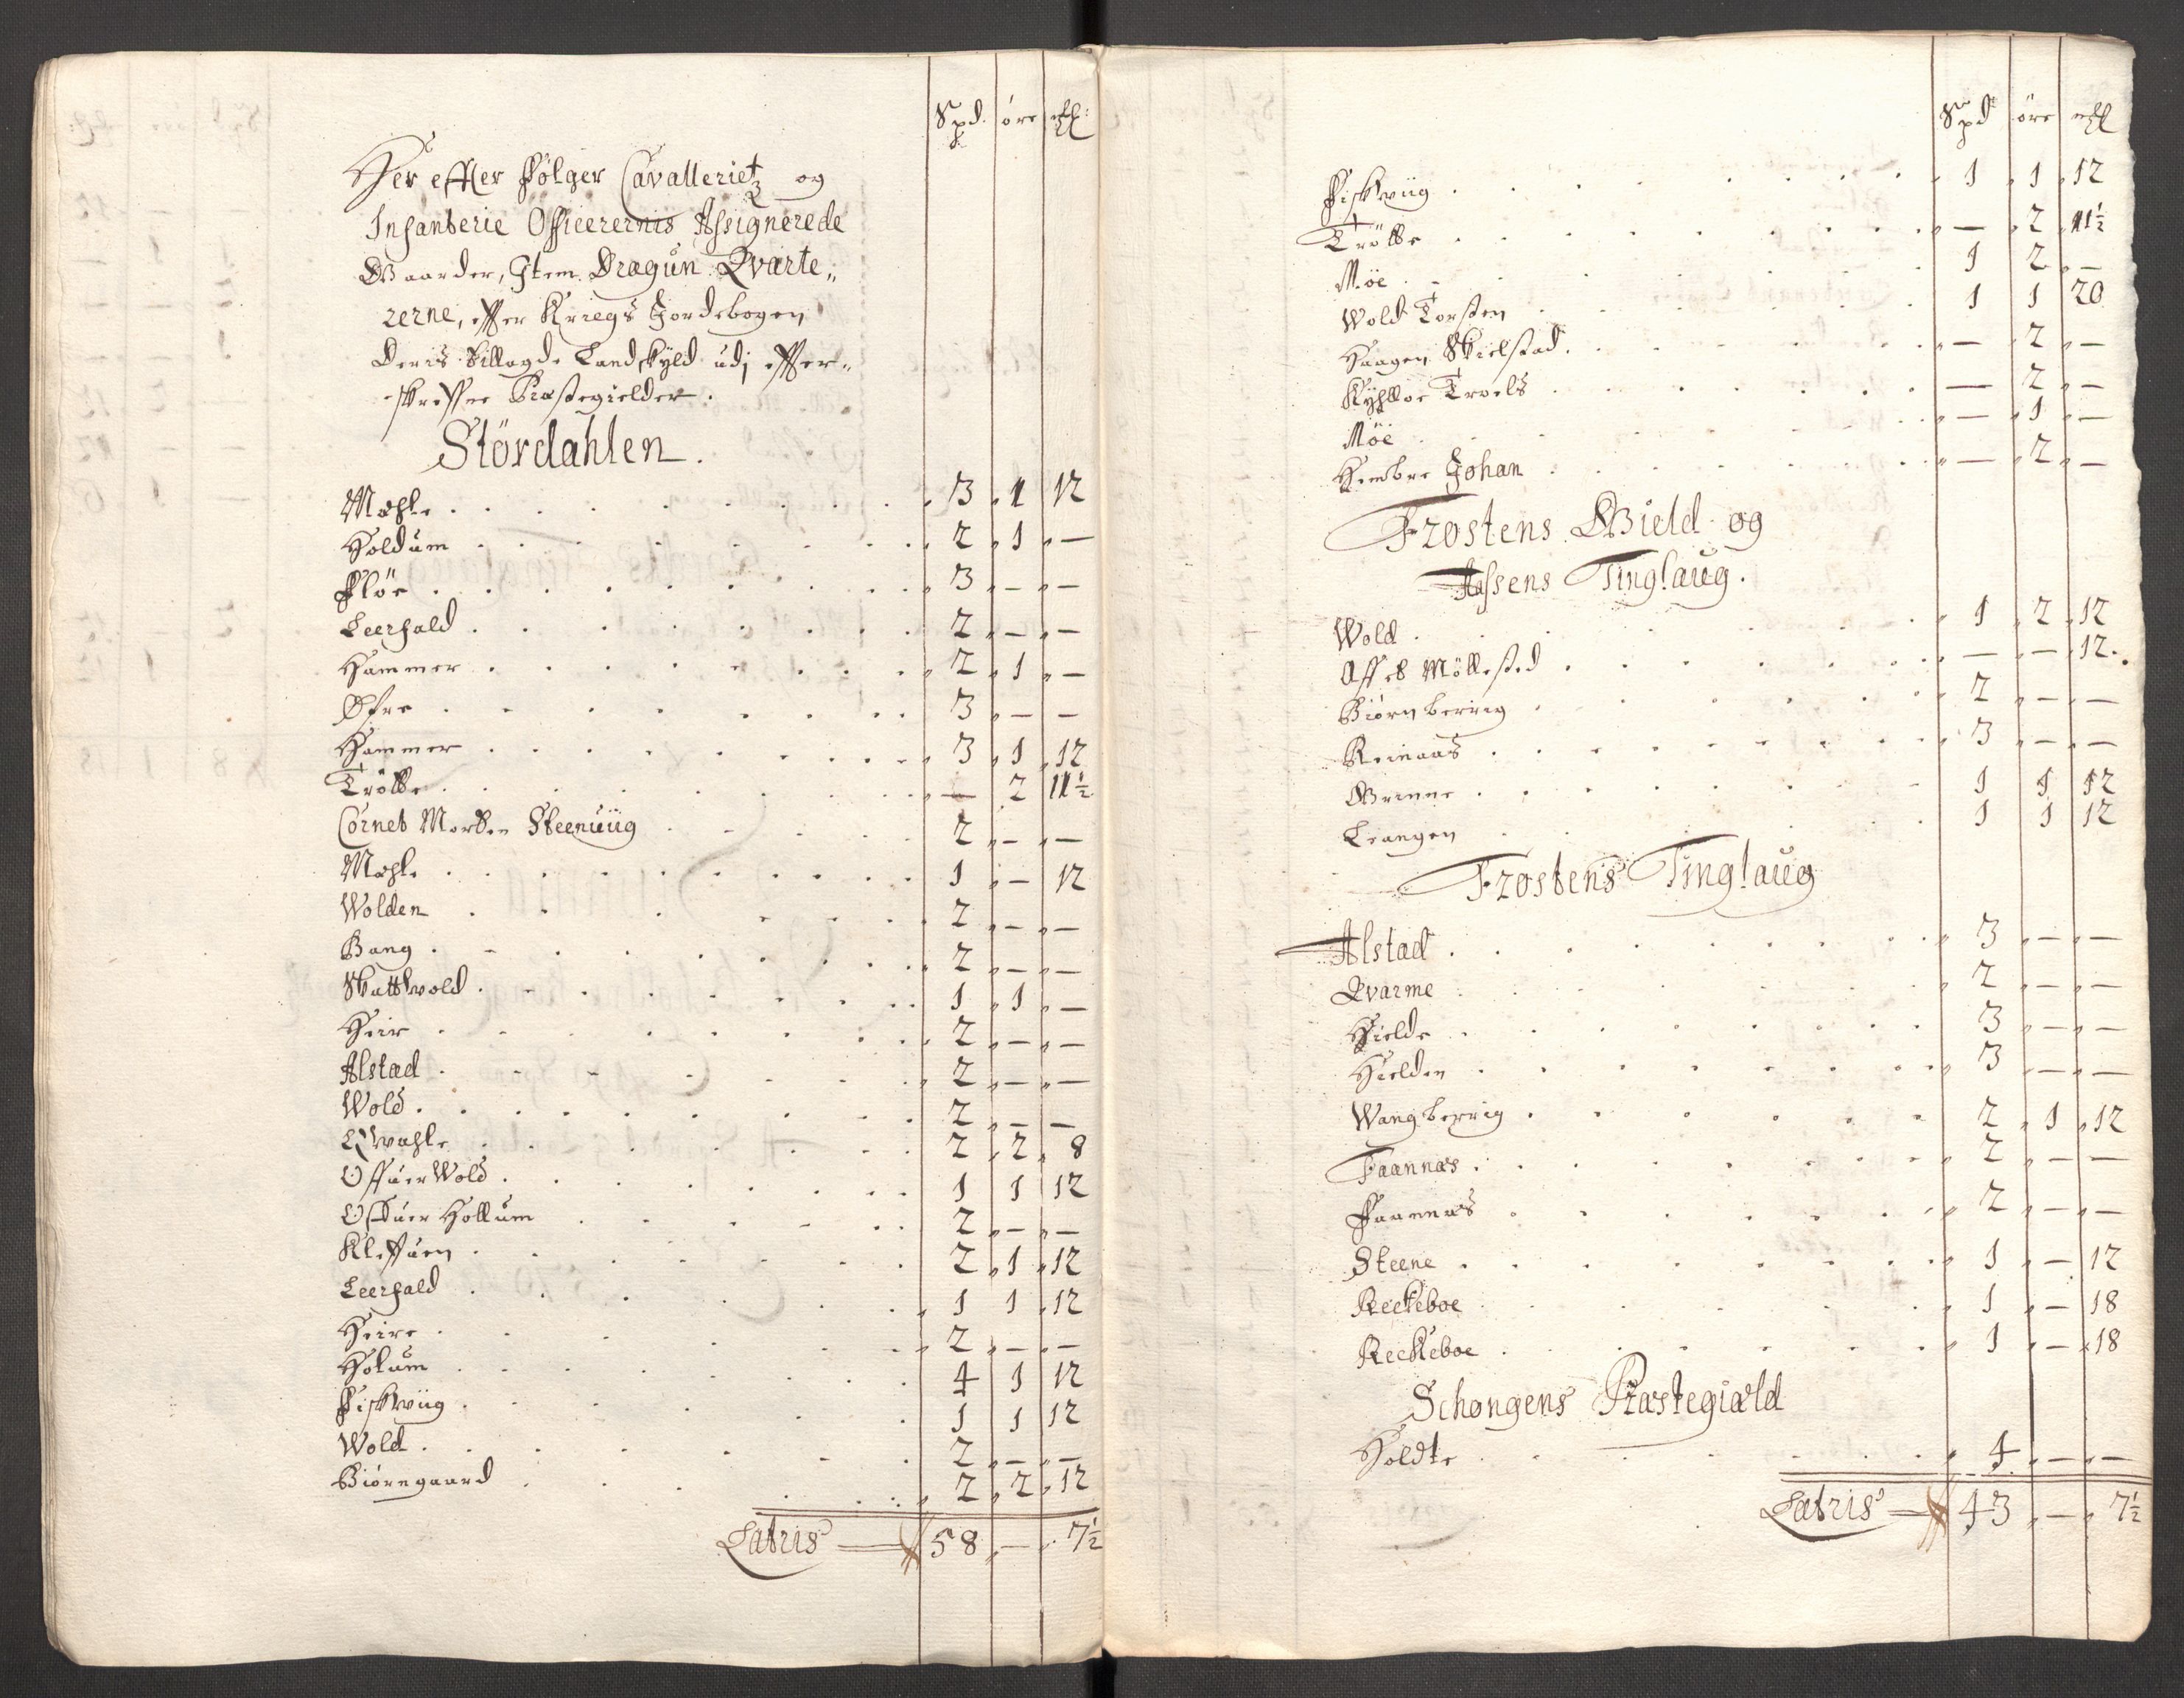 Spd. öre ell:
Her effter følger Cavalleriet og
Infanterie Officerernis Assignerede
Gaarder, Item Dragun Qvarte„
rerne, effter Kriegs Jordebogen
Deris tillagde Landskyld udj effter„
skrefne Præstegielder.
Stördahlen.
Mæhle . 3 . 1 12
Holdum . 2 . 1 . —
Flöe . 3 . — . —
Leerfald . 2 . — . —
Hammer . 2 . 1 . —
Øfre . 3 . — —
Hammer . 3 . 1 . 12
Trötte . — 2 11½
Cornet Morten Steenuiig 2 . — . —
Mæhle . 1 . — 12
Wolden . 2 . — . —
Bang . 2 . — . —
Skattvold . 1 . 1 . —
Heir . 2 . — . —
Alstad . 2 . — . —
Wold . 2 . — . —
Qvahle . 2 . 2 . 8
Offuer Wold . 1 1 12
Offuer Hollum . 2 . — . —
Kleffuen . 2 . 1 . 12
Leerfald . 1 1 . 12
Heire . 2 . — . —
Holum . 4 1 12
Fiskviig . 1 1 12
Wold . 2 . — . —
Biörngaard . 2 . 2 . 12
Latris — 58 . — . 7½
Spd öre ell
Fiskviig . 1 . 1 . 12
Trötte . — . 2 . 11½
Möe . 1 2 . —
Wold Torsten . 1 1 20
Haagen Skielstad . — . 2 . —
Kyhlloe Troels . — . 2 . —
Möe . — . 1 . —
Hembre Johan . — . 2 . —
Frostens Gield og
Aassens Tinglaug.
Wold . 1 . 2 . 12
Affet Möllested . — . — . 12.
Biörnberrig . 2 . — . —
Reinaas . 3 . — . —
Grinne . 1 1 12
Leangen . 1 1 12
Frostens Tinglaug
Alstad . 3 . — . —
Qvarme . 2 . — . —
Hielde . 3 . — . —
Hielden . 3 . — . —
Wangberrig . 2 . 1 . 12
Faannæs . 2 . — —
Faannæs . 2 . — . —
Steene . 1 . — 12
Reekeboe . 1 . — 18
Reekeboe . 1 . — . 18
Schongens Præstegiæld
Holdte . 4 . — . —
Latris — 43 . — . 7½